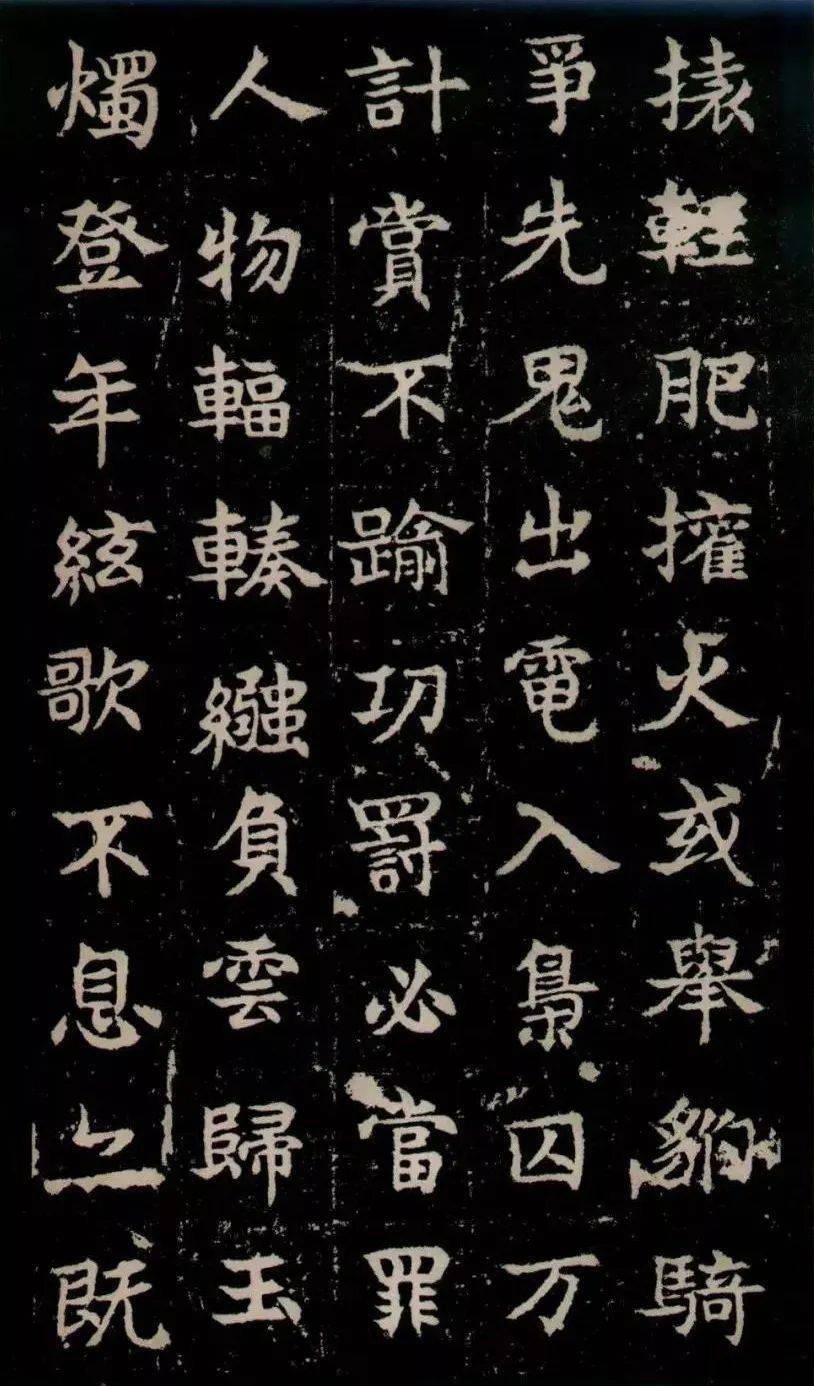 擐輕肥擁火或舉豹騎
爭先鬼出電入梟囚万
計賞不踰功罰必當罪
人物輻輳繈負雲歸玉
燭登年絃歌不息既